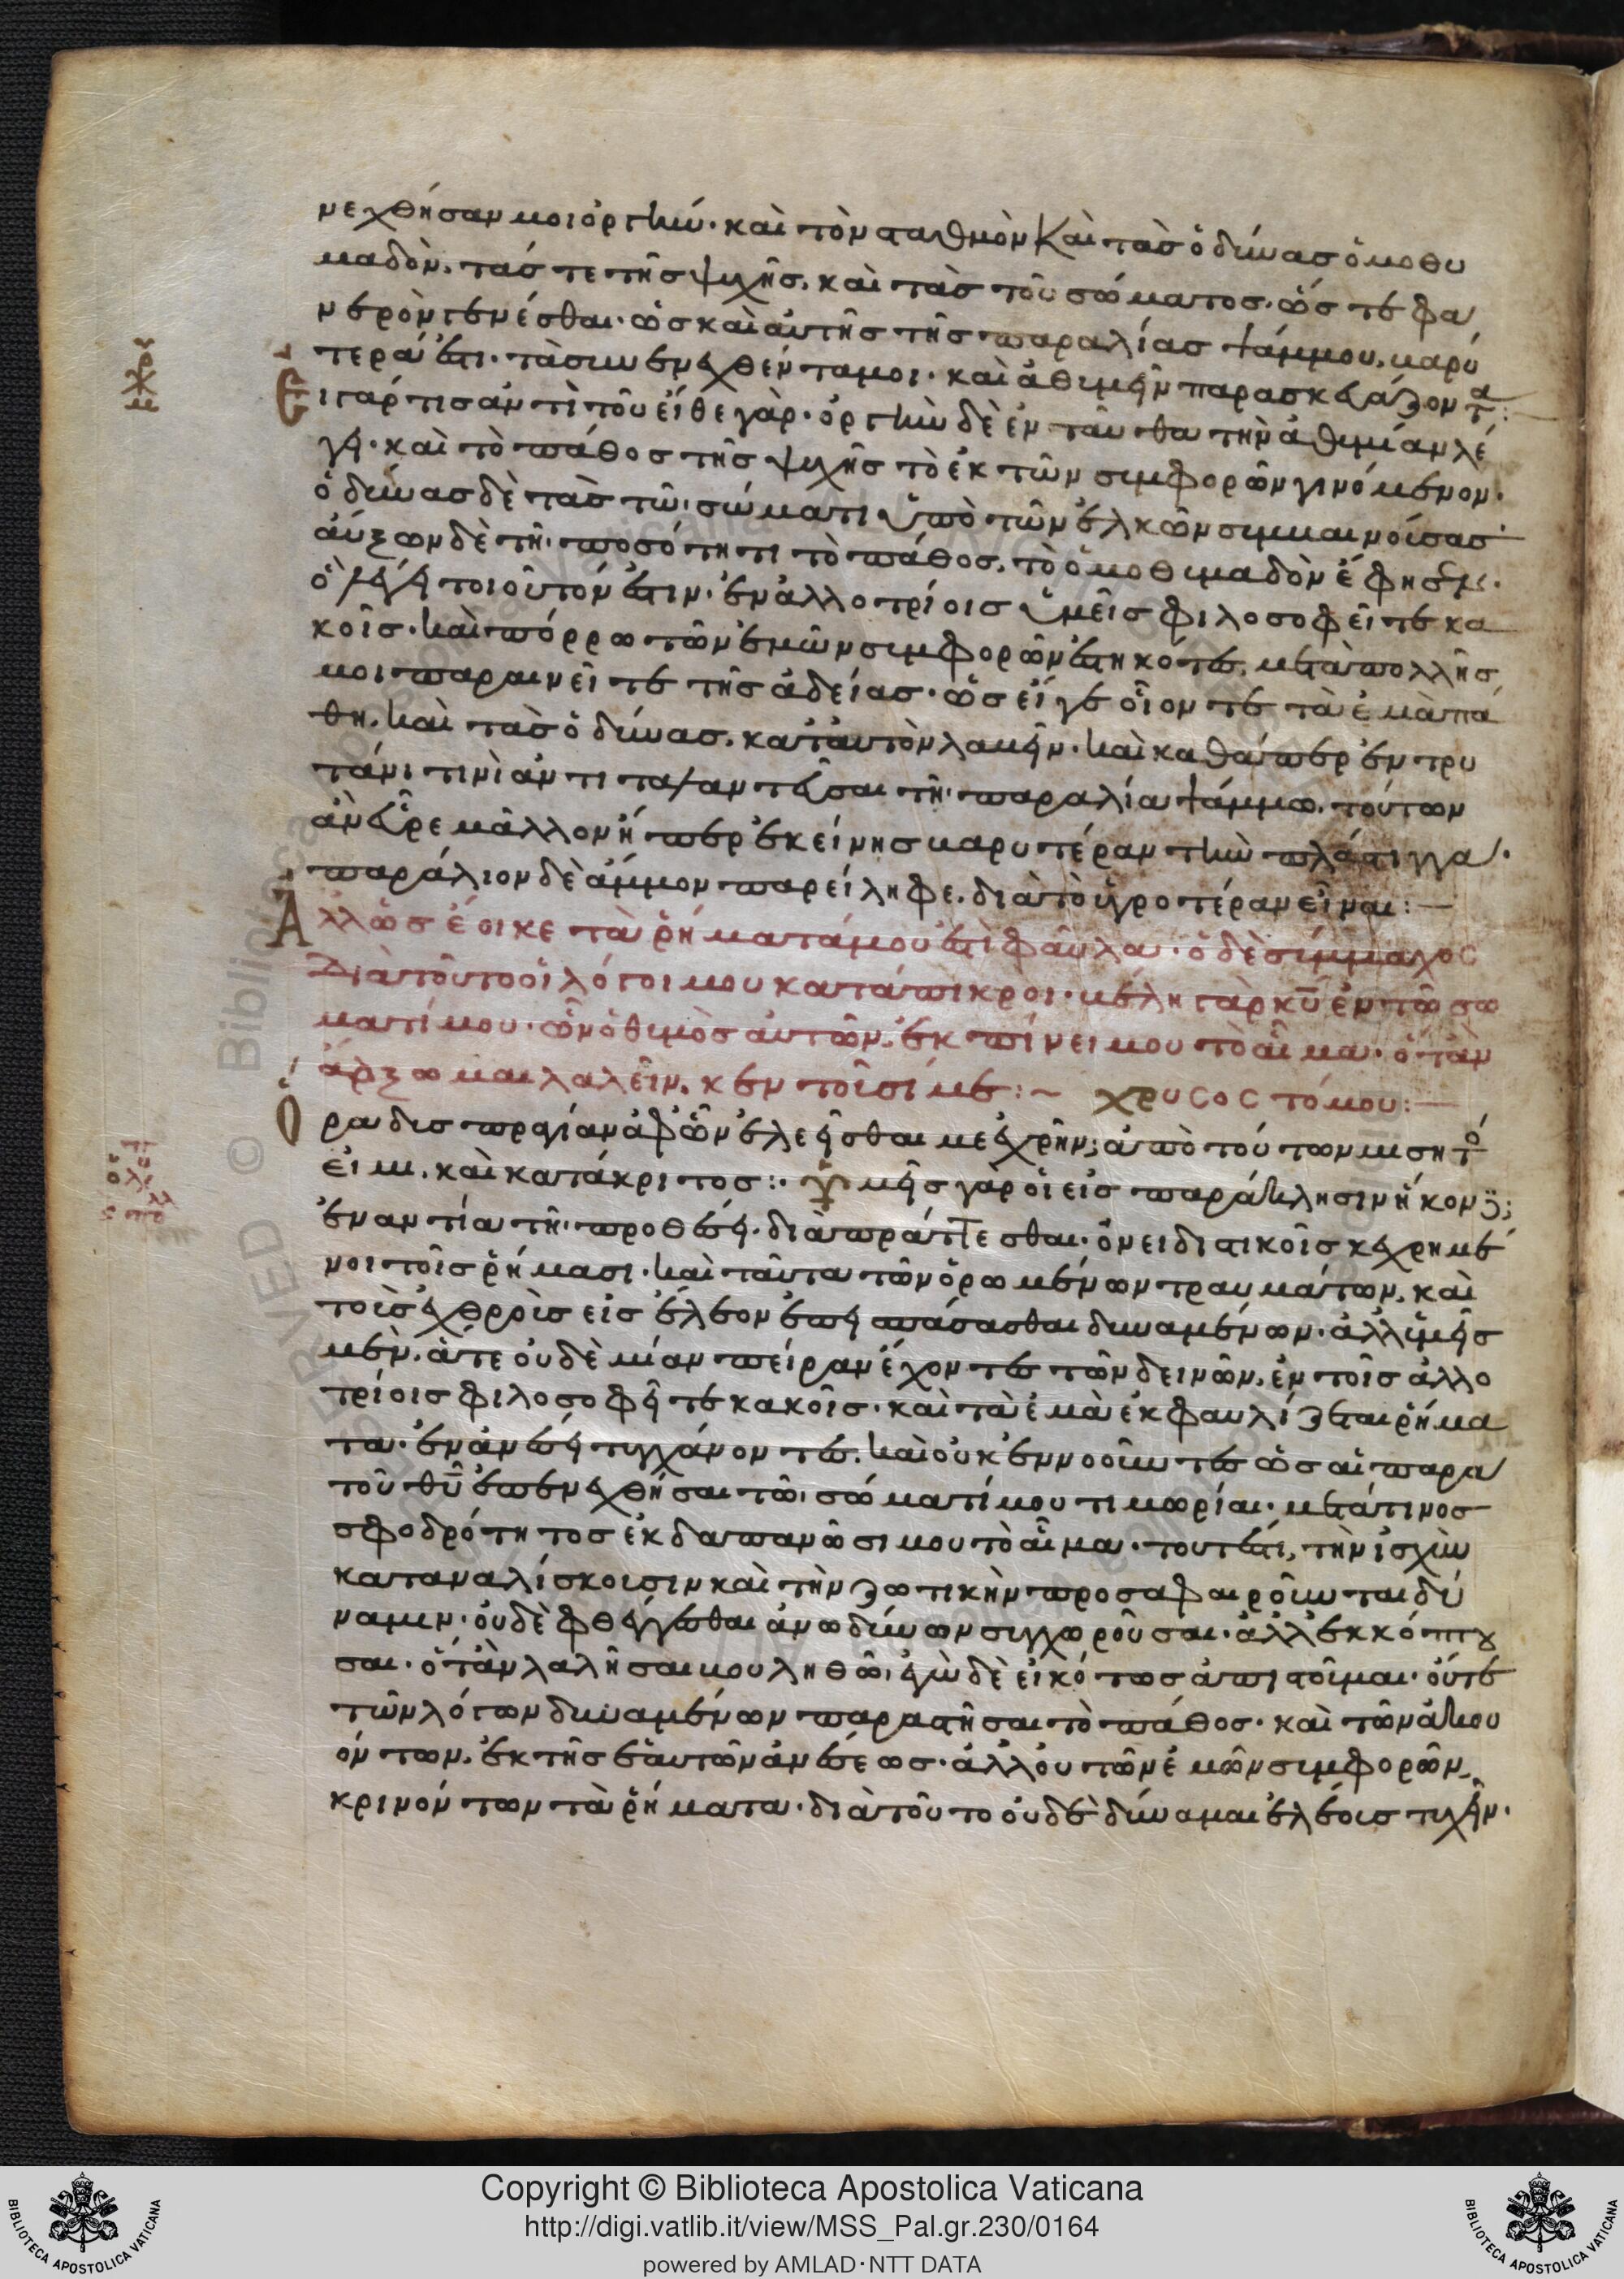 νεχθῆσάν μοι ὀργὴν· καὶ τὸν σταθμὸν καὶ τὰς ὀδύνας ὁμοθυ
μαδὸν. τάς τε τῆς ψυχῆς, καὶ τὰς τοῦ σώματος. ὥστε φα
νερὸν γενέσθαι· ὡς καὶ αὐτῆς τῆς παραλίας ψάμμου, βαρυ
τερά ἐστι· τὰ συνενεχθέντα μοι· καὶ ἀθυμεῖν παρασκευάζοντα:
Εἰ γάρ τις ἀντὶ τοῦ εἴθε γὰρ· ὀργὴν δὲ ἐνταῦθα τὴν ἀθυμίαν λέ
γει· καὶ τὸ πάθος τῆς ψυχῆς τὸ ἐκ τῶν συμφορῶν γινόμενον·
ὀδύνας δὲ τὰς τῶ σώματι ὑπὸ τῶν ἑλκῶν συμβαινούσας·
αὔξων δὲ τῆ ποσότητι τὸ πάθος, τὸ ὁμοθυμαδὸν ἔφησεν·
ὃ λέγει τοιοῦτόν ἐστιν· ἐν ἀλλοτρίοις ὑμεῖς φιλοσοφεῖτε κα
κοῖς· καὶ πόρρω τῶν ἐμῶν συμφορῶν ἑστηκότες, μετὰ πολλῆς
μοι παραινεῖτε τῆς ἀδείας· ὡς εἴγε οἷόν τε τὰ ἐμὰ πά
θη, καὶ τὰς ὀδύνας, κατ' αὐτὸν λαβεῖν· καὶ καθάπερ ἐν τρυ
τάνη τινὶ ἀντιταλαντεῦσαι τῆ παραλία ψάμμω, τούτων
ἂν εὗρε μᾶλλον ἤπερ ἐκείνης βαρυτέραν τὴν πλάστιγγα·
παράλιον δὲ ἄμμον παρείληφε, διὰ τὸ ὑγροτέραν εἶναι:
Ἀλλ' ὡς ἔοικε τὰ ῥήματά μου ἐστὶ φαῦλα· ὁ δὲ σύμμαχος
Διὰ τοῦτο οἱ λόγοι μου κατάπικροι· βέλη γὰρ κυ ἐν τῶ σω
ματί μου· ὧν ὁ θυμὸς αὐτῶν, ἐκπίνει μου τὸ αἷμα· ὅταν
ἄρξωμαι λαλεῖν, κεντοῦσί με: ~ χρυσοστόμου:
Ὁρᾶδις πρᾳίαν ἀφῶν ἐλεεῖσθαί με ἐχρῆν; ἀπὸ τούτων μισητός
εἰμι, καὶ κατάκριτος:· ὑμεῖς γὰρ οἱ εἰς παράκλησιν ἥκοντες;
ἐναντία τῆ προθέσει διαπράττεσθαι· ὀνειδιστικοῖς κεχρημέ
νοι τοῖς ῥήμασι· καὶ ταῦτα τῶν ὁρωμένων τραυμάτων, καὶ
τοὺς ἐχθροὺς εἰς ἔλεον ἐπισπάσασθαι δυναμένων· ἀλλ' ὑμεῖς
μὲν, ἅτε οὐδὲ μίαν πεῖραν ἔχοντες τῶν δεινῶν, ἐν τοῖς ἀλλο
τρίοις φιλοσοφεῖτε κακοῖς· καὶ τὰ ἐμὰ ἐκφαυλίζεται ῥήμα
τα· ἐν ἀνέσει τυγχάνοντες, καὶ οὐκ ἐννοοῦντες ὡς αἱ παρὰ
τοῦ θυ ἐπενεχθῆσαι τῶ σώματί μου τιμωρίαι· μετά τινος
σφοδρότητος ἐκδαπανῶσί μου τὸ αἷμα· τουτέστι, τὴν ἰσχὺν
καταναλίσκουσιν καὶ τὴν ζωτικὴν προσαφαιροῦνται δύ
ναμιν· οὐδὲ φθέγγεσθαι ἄνω δύνων συγχωροῦσαι· ἀλλ' ἐκκόπτου
σαι· ὅταν λαλῆσαι βουληθῶ, ἐγὼ δὲ εἰκότως ἀπιστοῦμαι· οὔτε
τῶν λόγων δυναμένων παραστῆσαι τὸ πάθος· καὶ τῶν ἀκου
όντων, ἐκ τῆς ἑαυτῶν ἀνέσεως· ἀλλ' οὐ τῶν ἐμῶν συμφορῶν,
κρινόντων τὰ ῥήματα· διὰ τοῦτο οὐδὲ δύναμαι ἐλέους τυχεῖν·
Copyright © Biblioteca Apostolica Vaticana
http://digi.vatlib.it/view/MSS_Pal.gr.230/0164
powered by AMLAD·NTT DATA
BIBLIOTECA APOSTOLICA VATICANA
BIBLIOTECA APOSTOLICA VATICANA